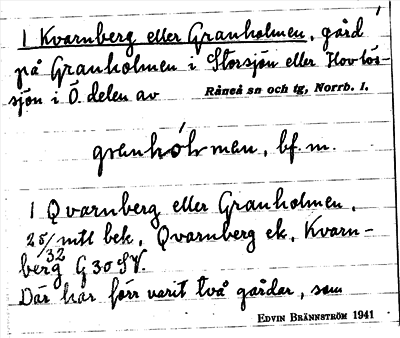 1
1 Kvarnberg eller Granholmen, gård
på Granholmen i Storsjön eller Hovlös-
sjön i Ö. delen av Råneå sn och tg, Norrb. l.
granhólmen, bf. m.
1 Qvarnberg eller Granholmen,
25/32 mtl bek, Qvarnberg ek, Kvarn-
berg G 30 SV.
Där har förr varit två gårdar, som
EDVIN BRÄNNSTRÖM 1941